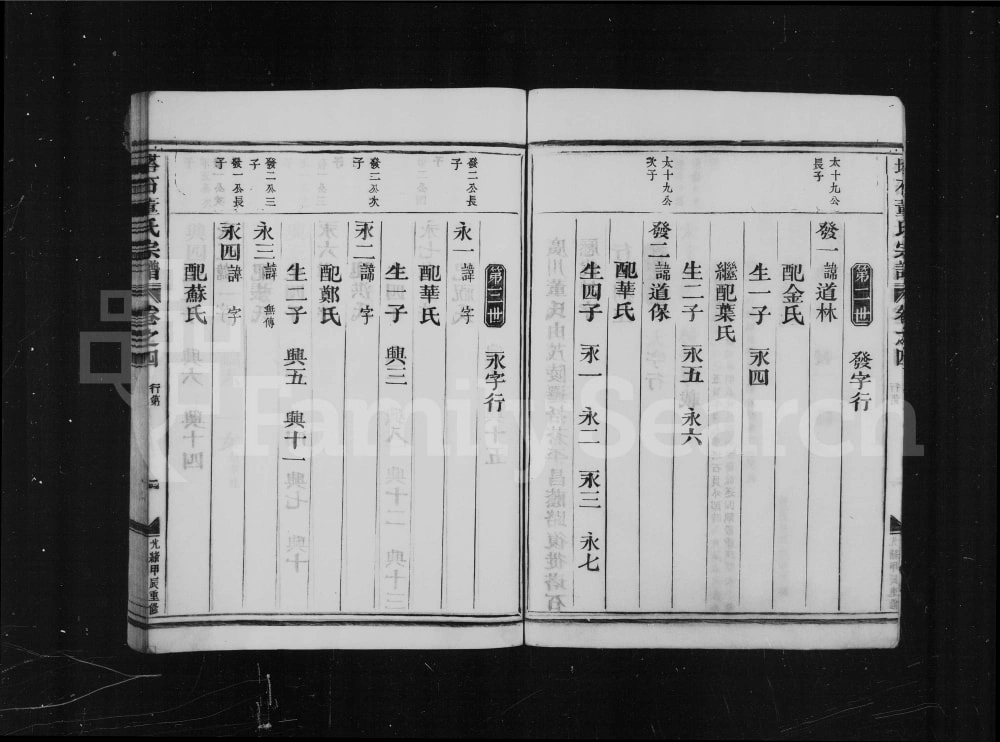 第二世 發字行
太十九公長子
發一 諱道林
配金氏
生一子 永四
繼配葉氏
生二子 永五 永六
太十九公次子
發二 諱道保
配華氏
生四子 永一 永二 永三 永七
第三世 永字行
發二公長子
永一 諱 字
配華氏
生一子 興三
發二公次子
永二 諱 字
配鄭氏
生二子 興五 興十一
發二公三子
永三 諱 無傳
發一公長子
永四 諱 字
配蘇氏
塔石董氏宗譜 卷之四 行第 光緒甲辰重修
FamilySearch